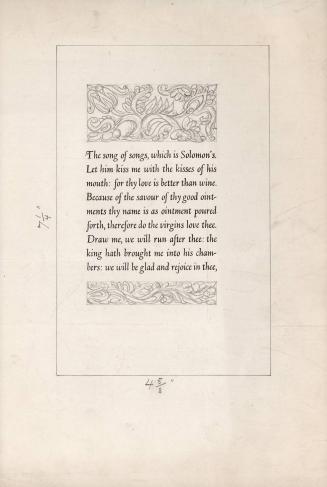 The song of songs, which is Solomon's.
Let him kiss me with the kisses of his
mouth: for thy love is better than wine.
Because of the savour of thy good oint-
ments thy name is as ointment poured
forth, therefore do the virgins love thee.
Draw me, we will run after thee: the
king hath brought me into his cham-
bers: we will be glad and rejoice in thee,
7 1/4"
4 5/8"